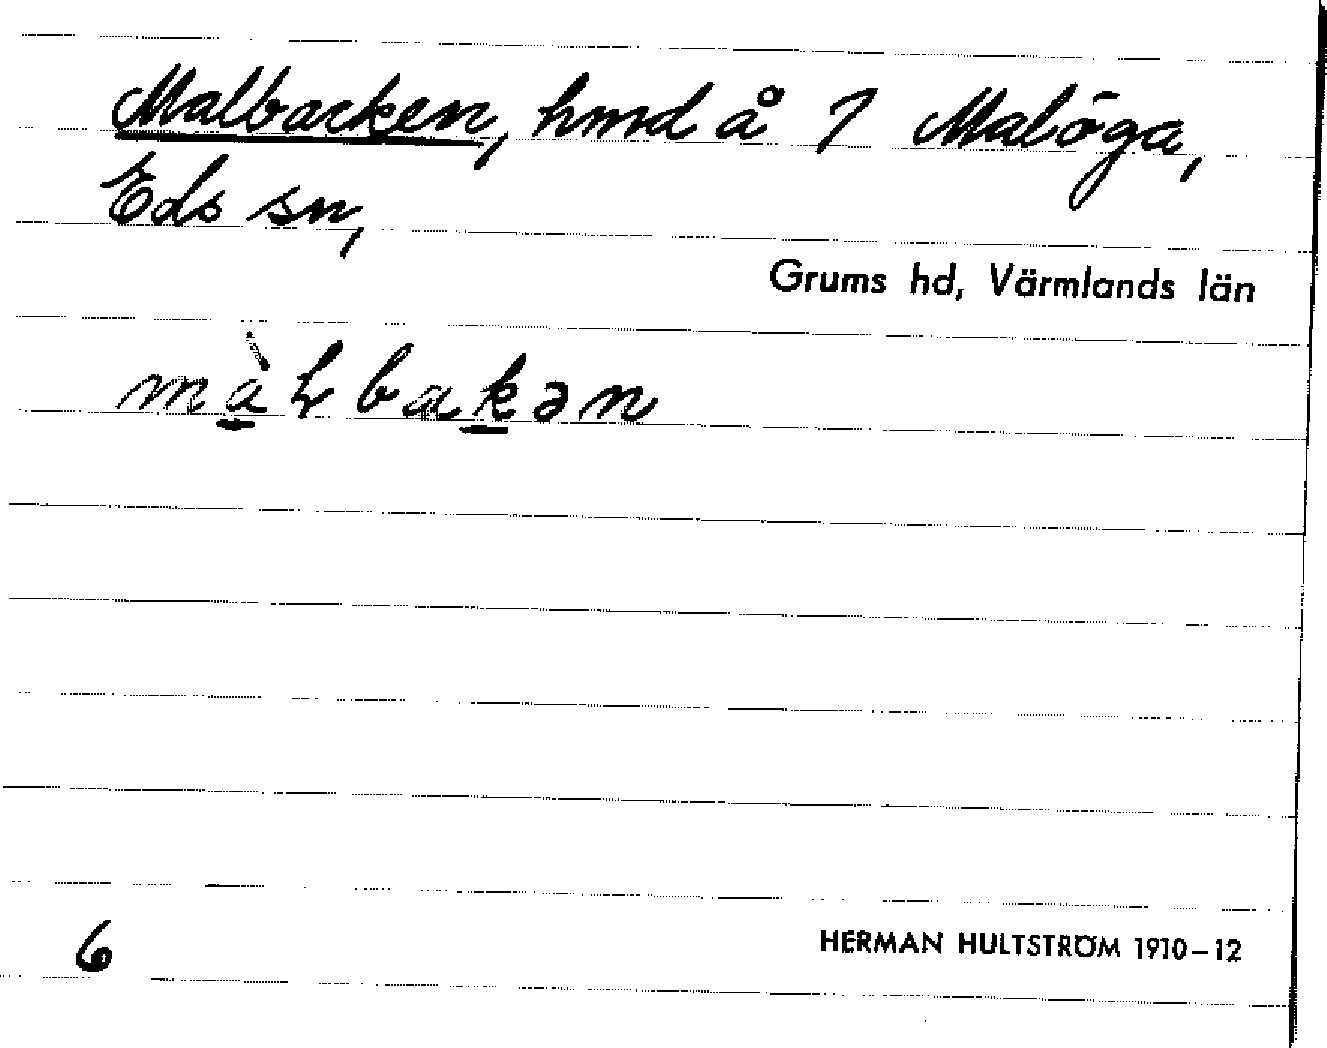 Malbacken, hmd å 1 Malöga,
Eds sn,
Grums hd, Värmlands län
màⱡbakən
6
HERMAN HULTSTRÖM 1910–12